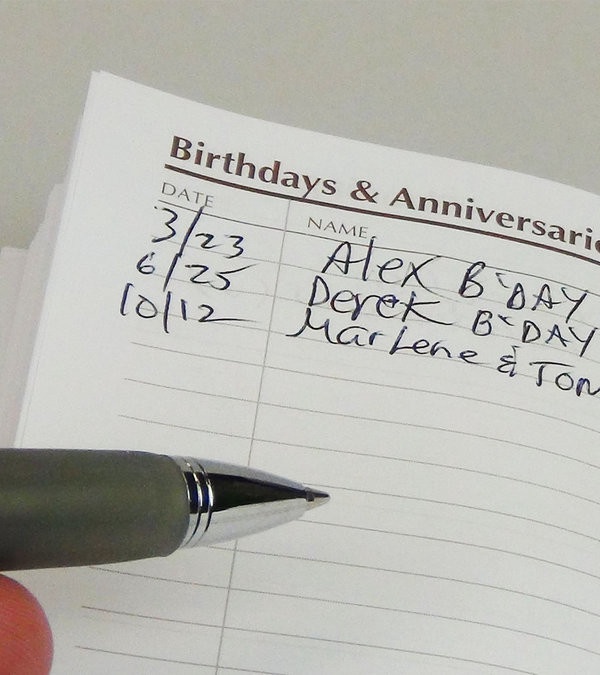 Birthdays & Anniversarie
DATE NAME
3/23 Alex B'DAY
6/25 Derek B'DAY
10/12 Marlene & Tom